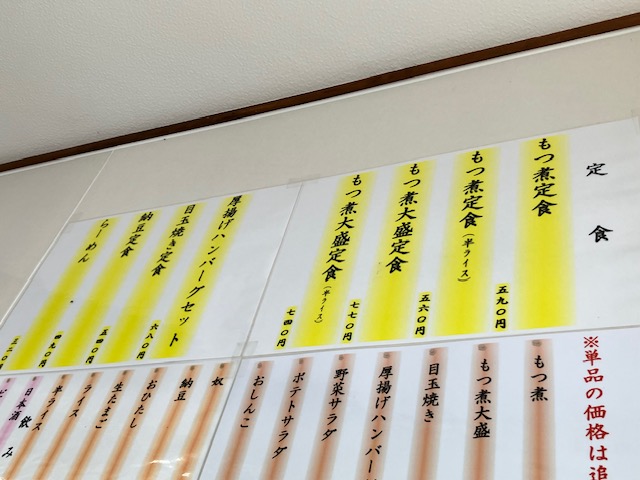 定食
もつ煮定食
五九〇円
もつ煮定食(半ライス)
五六〇円
もつ煮大盛定食
七七〇円
もつ煮大盛定食(半ライス)
七四〇円
厚揚げハンバーグセット
六八〇円
目玉焼き定食
五四〇円
納豆定食
四九〇円
らーめん
※単品の価格は追
もつ煮
もつ煮大盛
目玉焼き
厚揚げハンバ
野菜サラダ
ポテトサラダ
おしんこ
奴
納豆
おひたし
生たまご
ライス
半ライス
飲み
日本酒